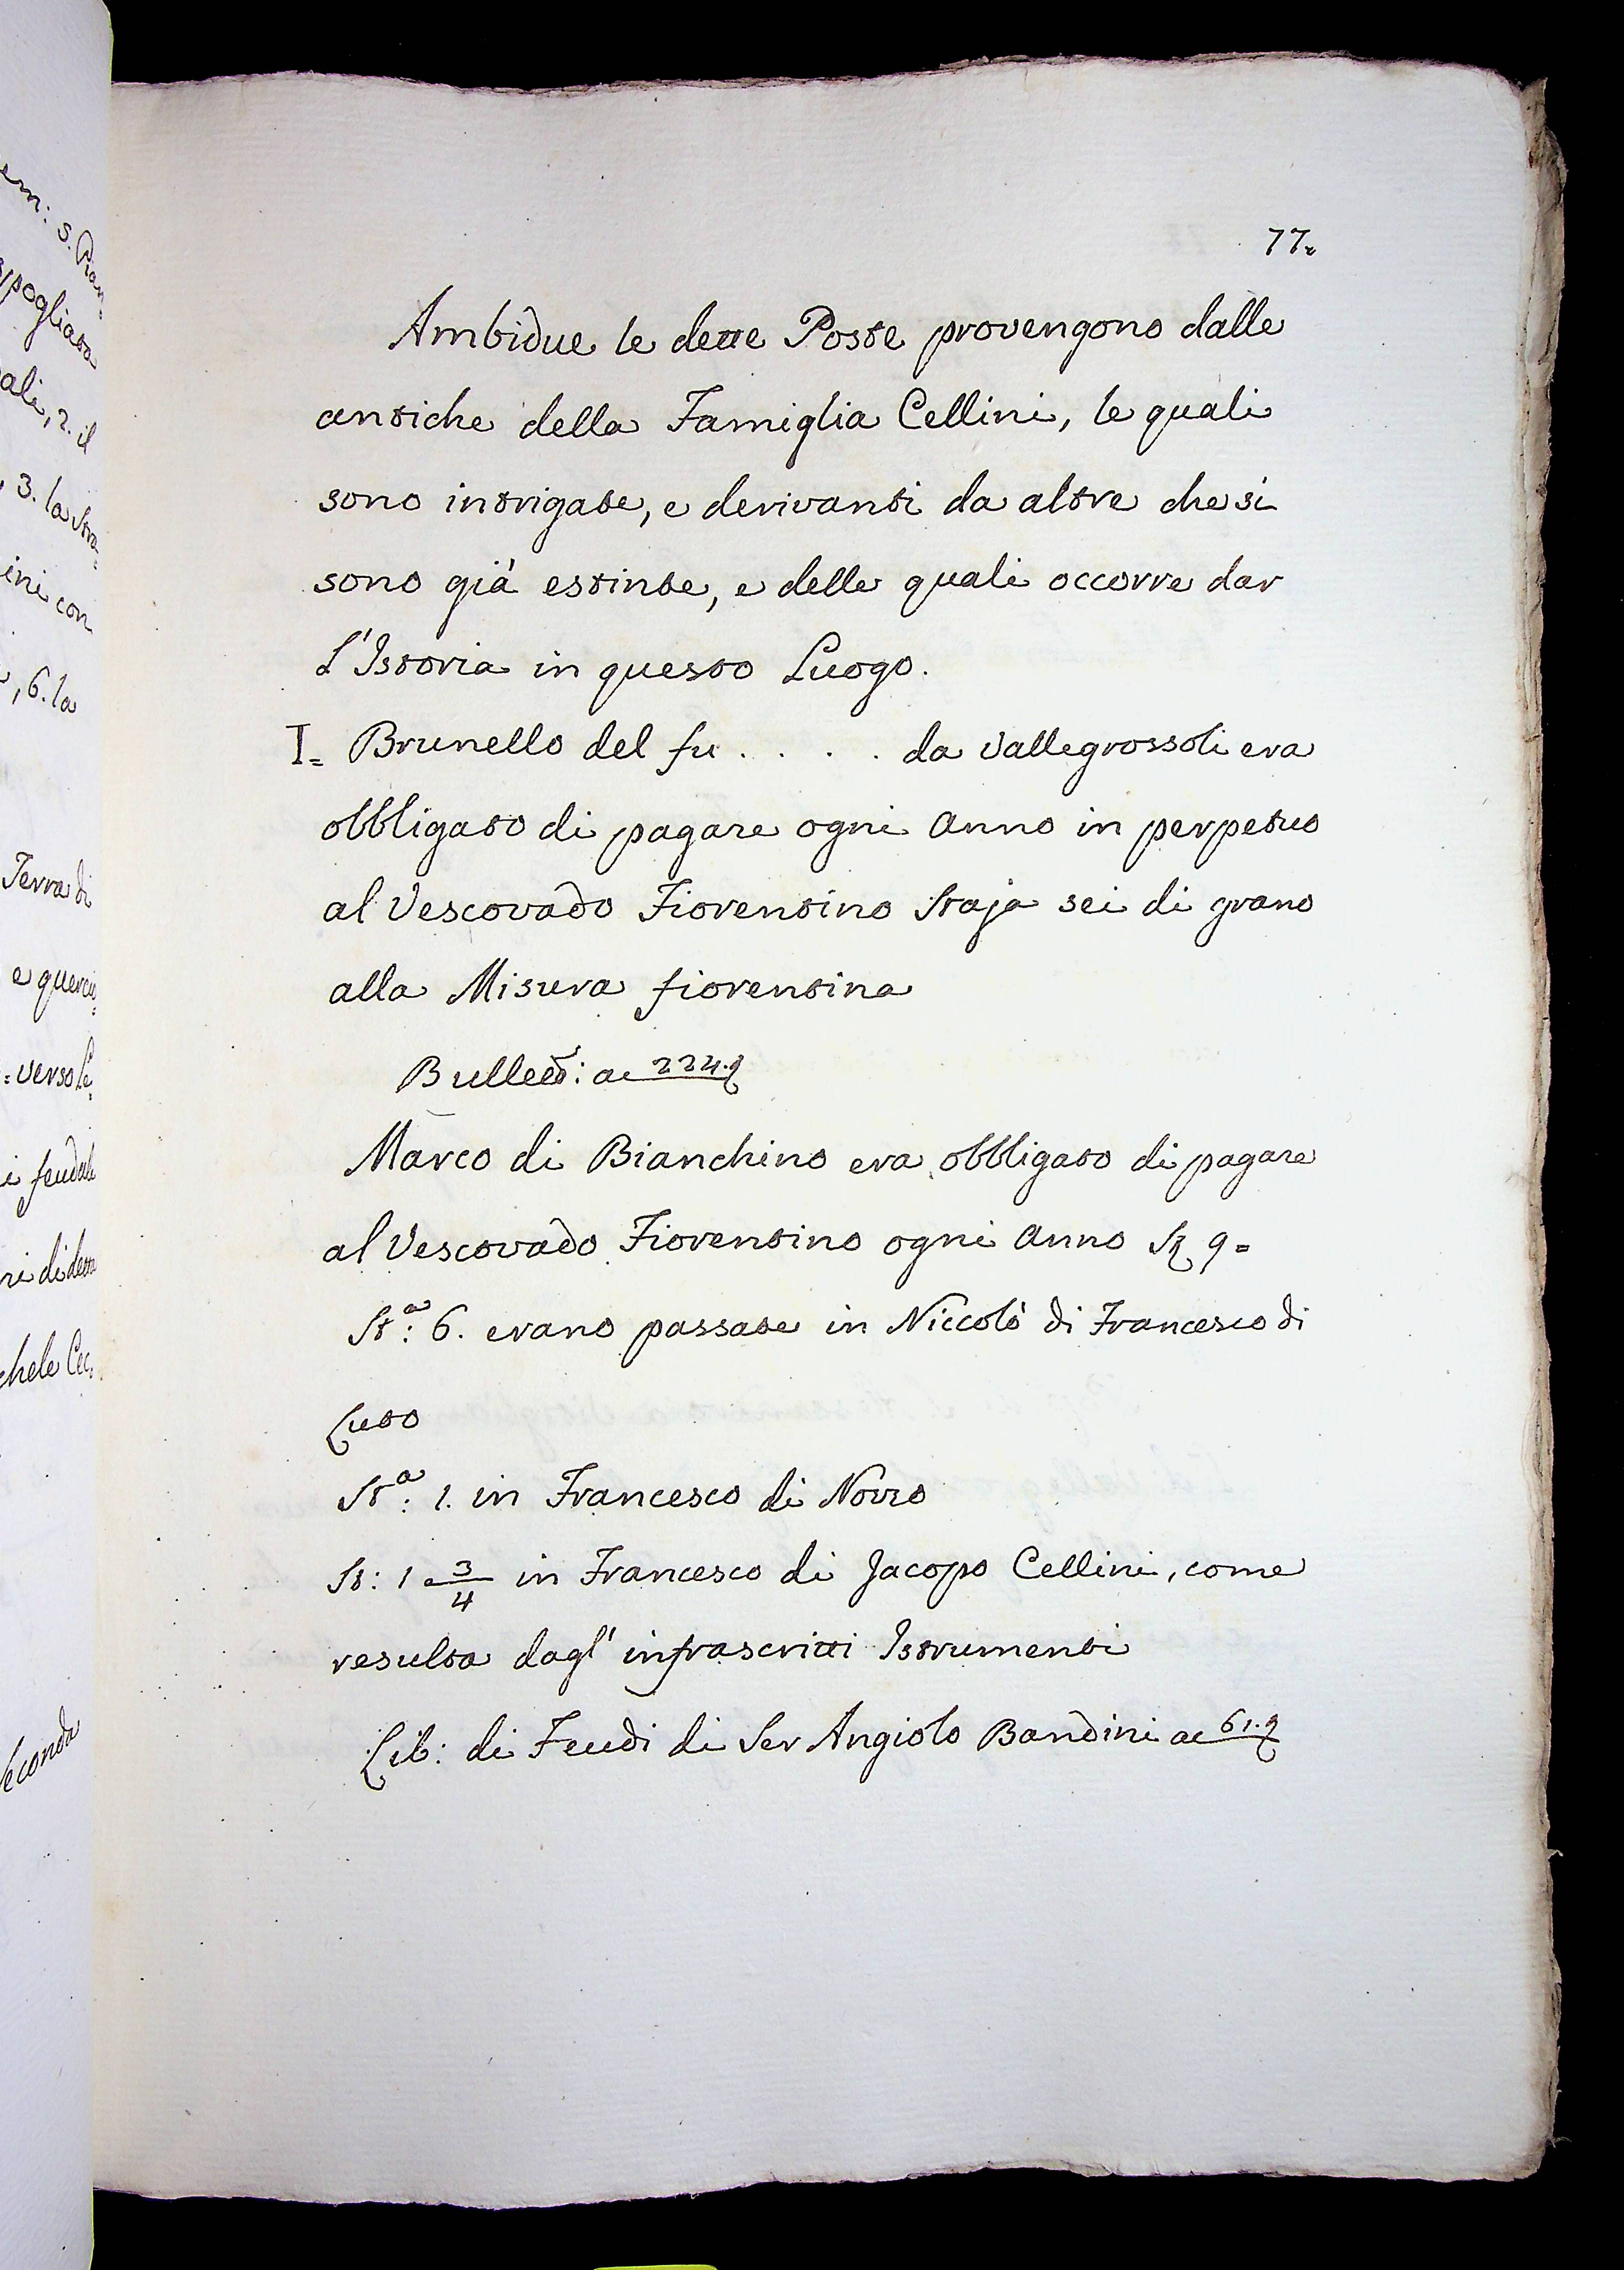 em: S. Pian
spogliata
ali, 2. il
3. la Stra=
ini con
, 6. la
Terra di
e querciu=
=verso le=
i feudale
ri di detta
chele Cec.
Seconda
77.
Ambidue le dette Poste provengono dalle
antiche della Famiglia Cellini, le quali
sono intrigate, e derivanti da altre che si
sono già estinte, e delle quali occorre dar
L'Istoria in questo Luogo.
I= Brunello del fu . . . . da Vallegrossoli era
obbligato di pagare ogni Anno in perpetuo
al Vescovado Fiorentino Staja sei di grano
alla Misura fiorentina
Bullett: a 224.
Marco di Bianchino era obbligato di pagare
al Vescovado Fiorentino ogni Anno 9=
St.ª: 6. erano passate in Niccolò di Francesco di
Luto
St.ª: 1. in Francesco di Nozzo
St: 1 3/4 in Francesco di Jacopo Cellini, come
resulta dagl' infrascritti Istrumenti
Lib: di Feudi di Ser Angiolo Bandini a 61.